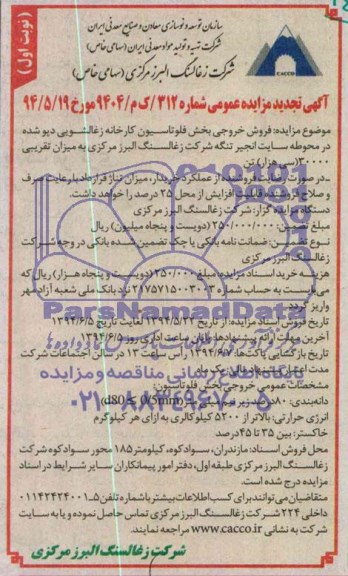 (نوبت اول)
سازمان توسعه و نوسازی معادن و صنایع معدنی ایران
شرکت تهیه و تولید مواد معدنی ایران (سهامی خاص)
شرکت زغالسنگ البرز مرکزی (سهامی خاص)
CACCO
آگهی تجدید مزایده عمومی شماره ۳۱۲/ک م/۹۴۰۴ مورخ ۹۴/۵/۱۹
موضوع مزایده: فروش خروجی بخش فلوتاسیون کارخانه زغالشویی دپو شده
در محوطه سایت انجیر تنگه شرکت زغالسنگ البرز مرکزی به میزان تقریبی
۳۰۰۰۰ (سی هزار) تن
ـ در صورت رضایت فروشنده از عملکرد خریدار، میزان تناژ قرارداد با رعایت صرف
و صلاح فروشنده قابلیت افزایش از محل ۲۵ درصد را خواهد داشت.
دستگاه مزایده گزار: شرکت زغالسنگ البرز مرکزی
مبلغ تضمین: ۲۵۰/۰۰۰/۰۰۰ (دویست و پنجاه میلیون) ریال
نوع تضمین: ضمانت نامه بانکی یا چک تضمین شده بانکی در وجه شرکت
زغالسنگ البرز مرکزی
هزینه خرید اسناد مزایده: مبلغ ۲۵۰/۰۰۰ (دویست و پنجاه هزار) ریال که
می‌بایست به حساب شماره ۲۱۷۵۷۱۵۰۰۳۰۰۳ نزد بانک ملی شعبه آزادمهر
واریز گردد.
تاریخ فروش اسناد مزایده: از تاریخ ۱۳۹۴/۵/۲۲ لغایت تاریخ ۱۳۹۴/۶/۵
آخرین مهلت ارائه پیشنهادها: پایان ساعت اداری روز ۱۳۹۴/۶/۵
تاریخ بازگشایی پاکت‌ها: ۱۳۹۴/۶/۷ رأس ساعت ۱۳ در سالن اجتماعات شرکت
مدت اعتبار پیشنهاد مالی: یک ماه
مشخصات عمومی خروجی بخش فلوتاسیون:
دانه‌بندی: ۸۰ درصد زیر نیم میلی‌متر (d80≤ 0/5mm)
انرژی حرارتی: بالاتر از ۵۲۰۰ کیلوکالری به ازای هر کیلوگرم
خاکستر: بین ۳۵ تا ۴۵ درصد
محل فروش اسناد: مازندران، سوادکوه، کیلومتر ۱۸۵ محور سوادکوه شرکت
زغالسنگ البرز مرکزی طبقه اول، دفتر امور پیمانکاران سایر شرایط در اسناد
مزایده درج شده است.
متقاضیان می‌توانند برای کسب اطلاعات بیشتر با شماره تلفن ۵ـ۰۱۱۴۲۴۲۴۰۰۱
داخلی ۲۲۴ شرکت زغالسنگ البرز مرکزی تماس حاصل نموده و یا به سایت
شرکت به نشانی www.cacco.ir مراجعه نمایند.
شرکت زغالسنگ البرز مرکزی
ParsNamadData
پایگاه اطلاع رسانی مناقصه و مزایده
۰۲۱-۸۸۳۴۹۶۷۰-۵